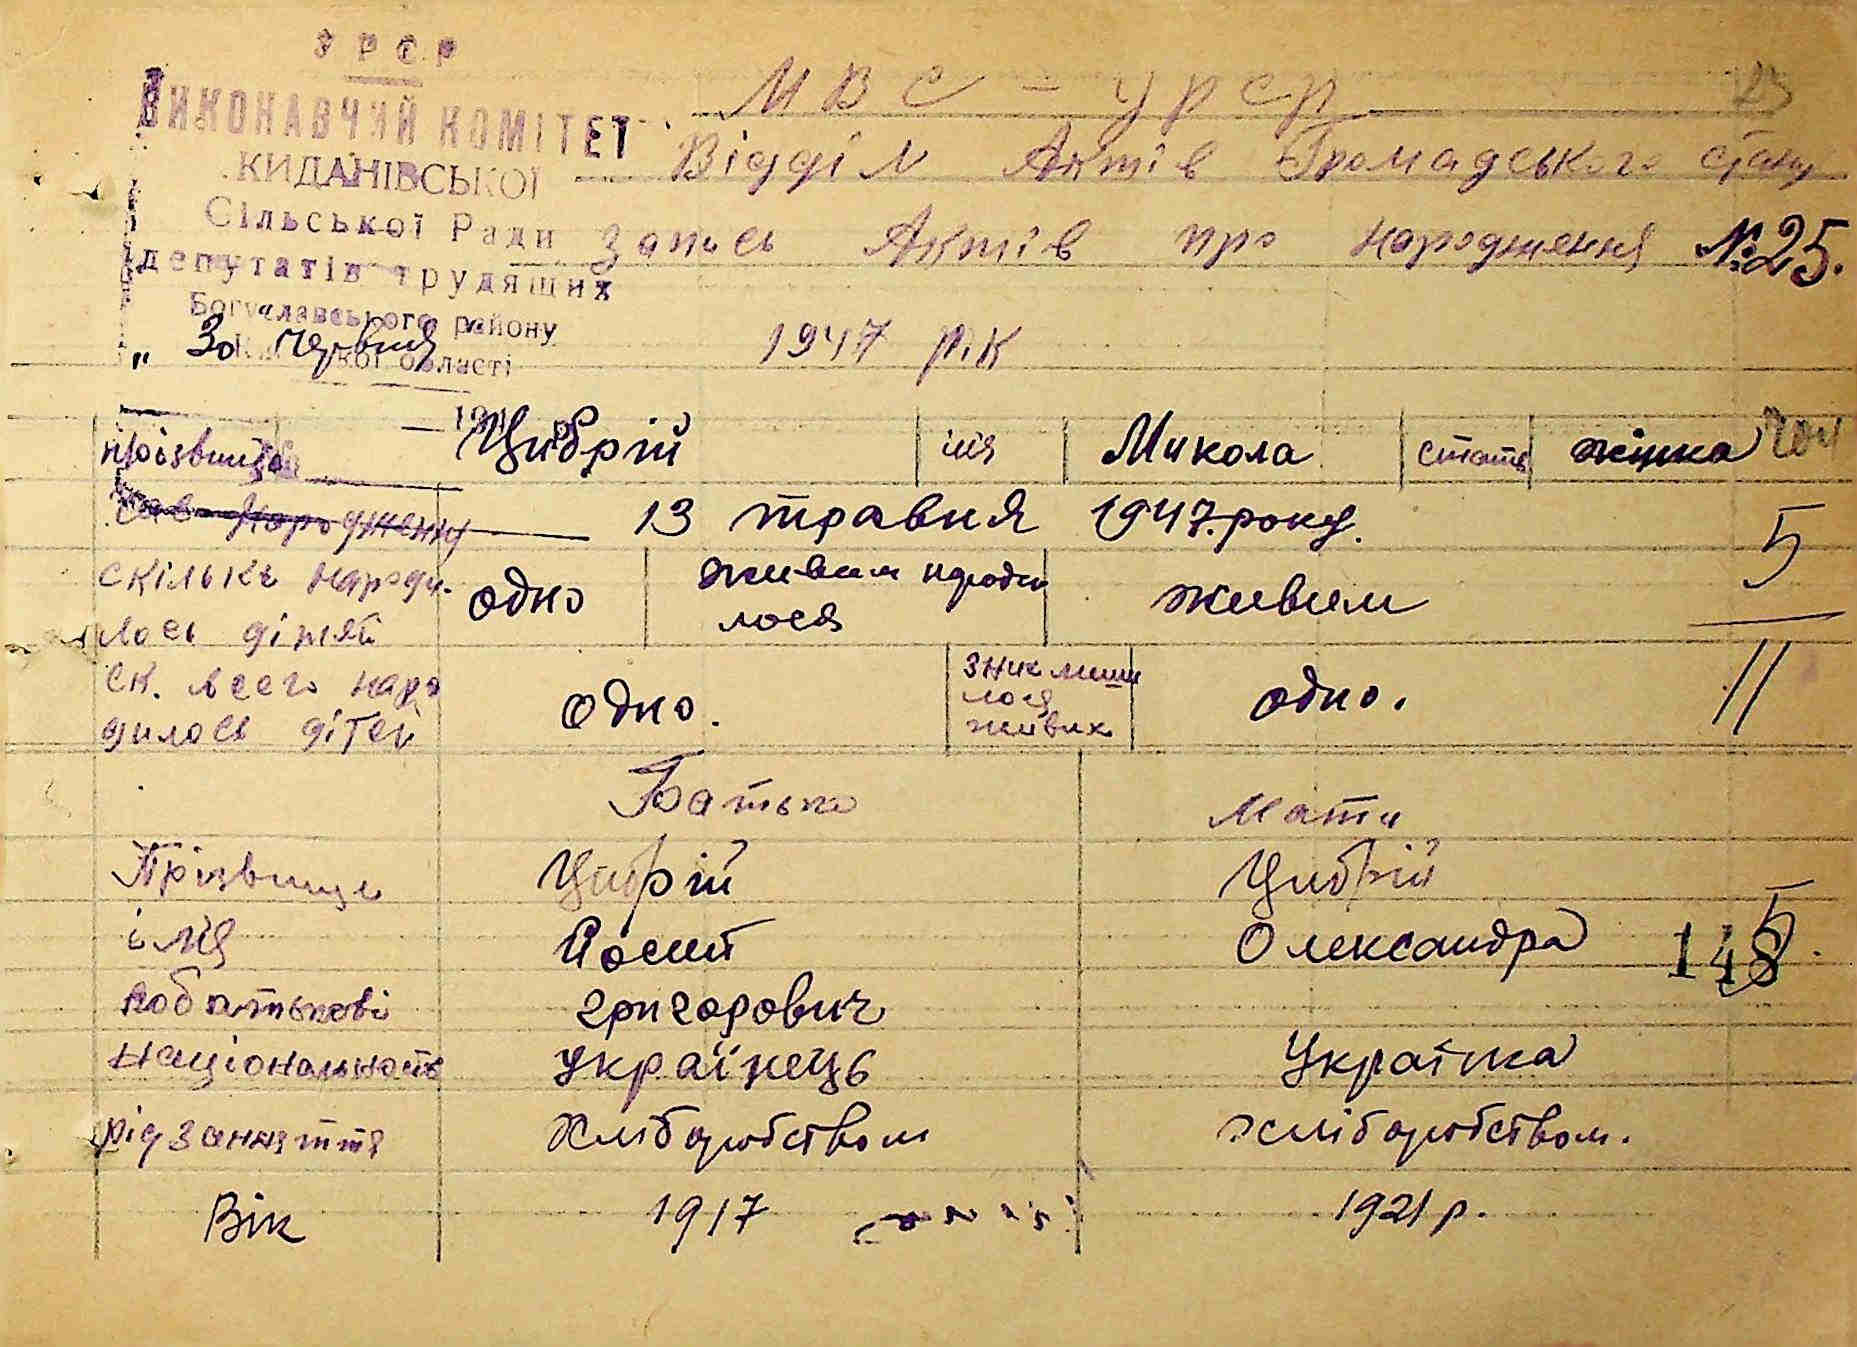 УРСР
ВИКОНАВЧИЙ КОМІТЕТ
КИДАНІВСЬКОЇ
Сільської Ради
депутатів трудящих
Богуславського району
області
30 червня
23
МВС - УРСР
Відділ Актів Громадського стану
Запись Актів про народження №25.
1947 рік
прізвище Цибрій імя Микола стать жінка чол
час народження 13 травня 1947.року.
скільки народи- одно живим народи живим 5
лось дітей лося
ск. всего наро одно. з них лиши одно. 11
дилось дітей лося живих
Батько Мати
Прізвище Цибрій Цибрій
імя Йосип Олександра 5
148
побатькові григорович
національность українець Українка
рід заняття Хліборобством хліборобством.
Вік 1917 1921 р.